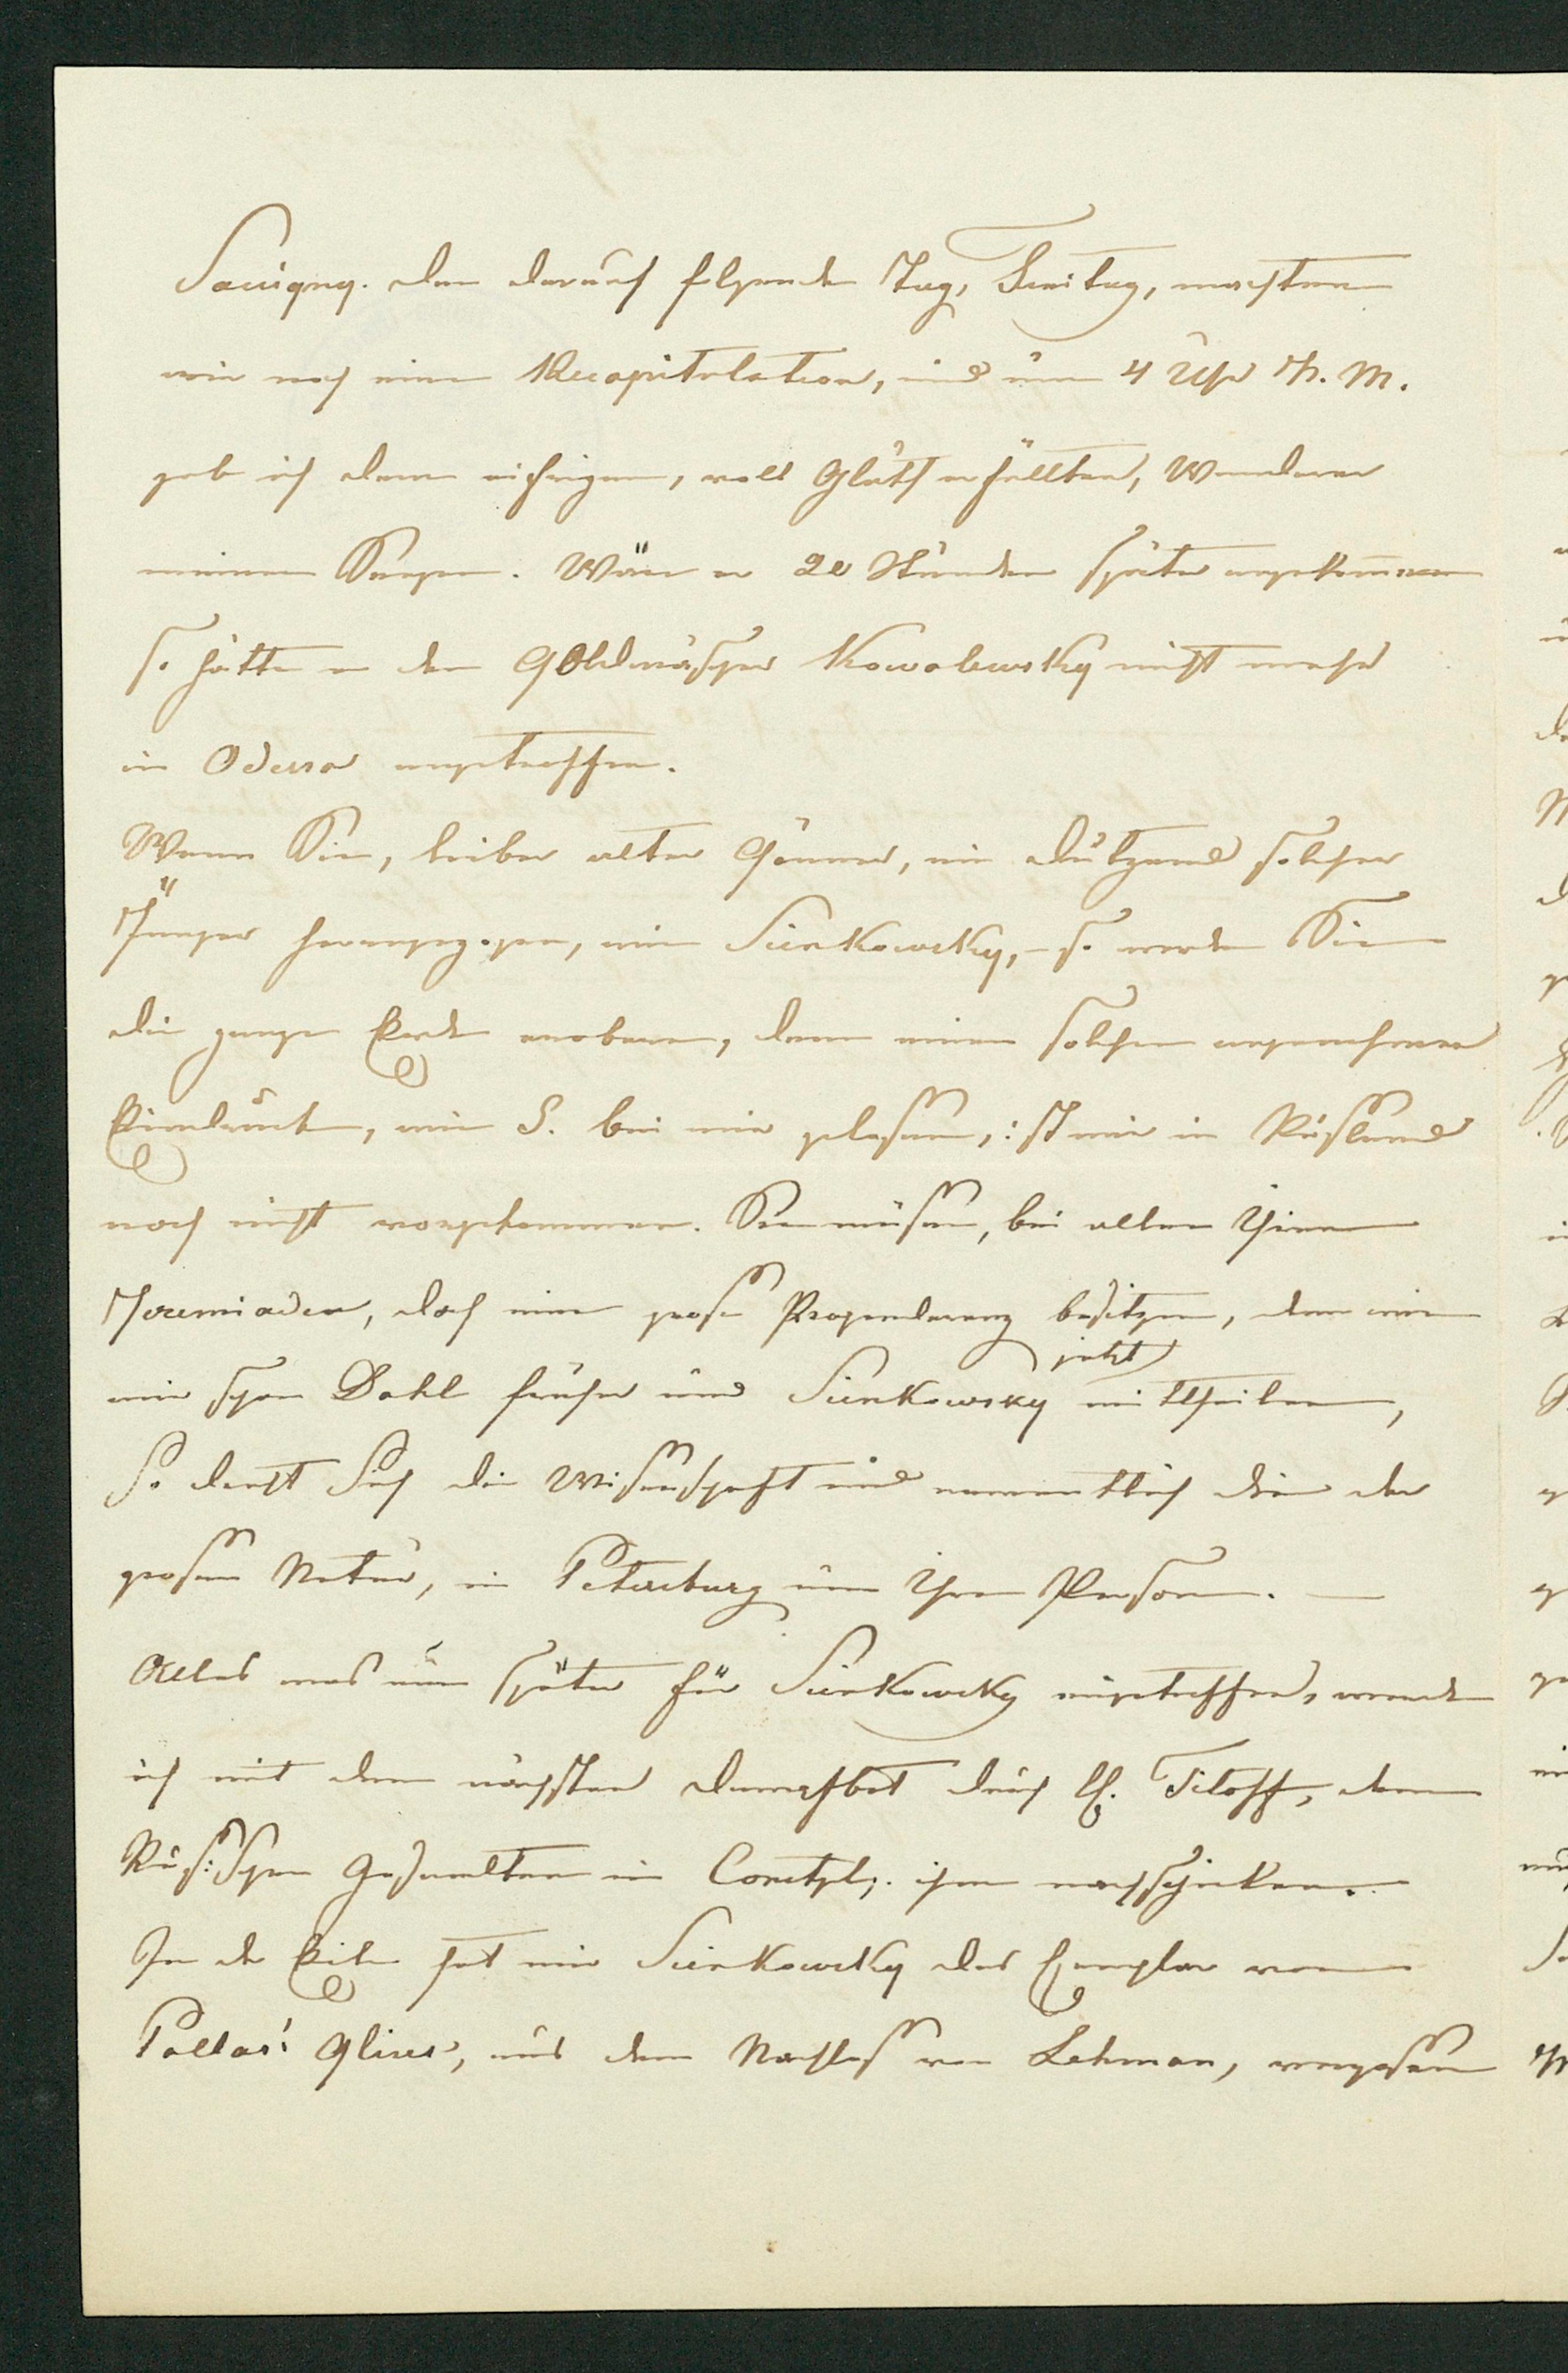 Savigny. den darauf folgenden Tag, Freitag, machten
wir noch eine Recapitulation, und um 4 Uhr N. M.
gab ich dem eifrigen, voll Gluth erfüllten, Wanderer
meinen Segen. Wäre er 20 Stunden später angekom̄en
so hätte er den Goldwäscher Kowalewsky nicht mehr
in Odessa angetroffen.
Wenn Sie, lieber alter Gönner, ein dutzend solcher
Jünger herangezogen, wie Sienkowsky, – so werden Sie
die ganze Erde erobern, denn einen solchen angenehmen
Eindruck, wie S. bei mir gelassen, ist mir in Rußland
noch nicht vorgekommen. Sie müßen, bei allen Ihren
Jeremiaden, doch eine große Propenderenz besitzen, denn wie
mir schon Dahl früher und Sienkowsky jetzt mittheilen,
So dreht Sich die Wißenschaft und namentlich die der
großen Natur, in Petersburg um Ihre Person. —
Alles was nun später für Sienkowsky eingetroffen, werde
ich mit dem nächsten Dampfbot durch H. Titoff, dem
Rußischen Gesandten in Constpl. ihm nachschicken.
In der Eile hat mir Sienkowsky das Exemplar von
Pallas' Glires, aus dem Nachlaß von Lehman, vergeßen